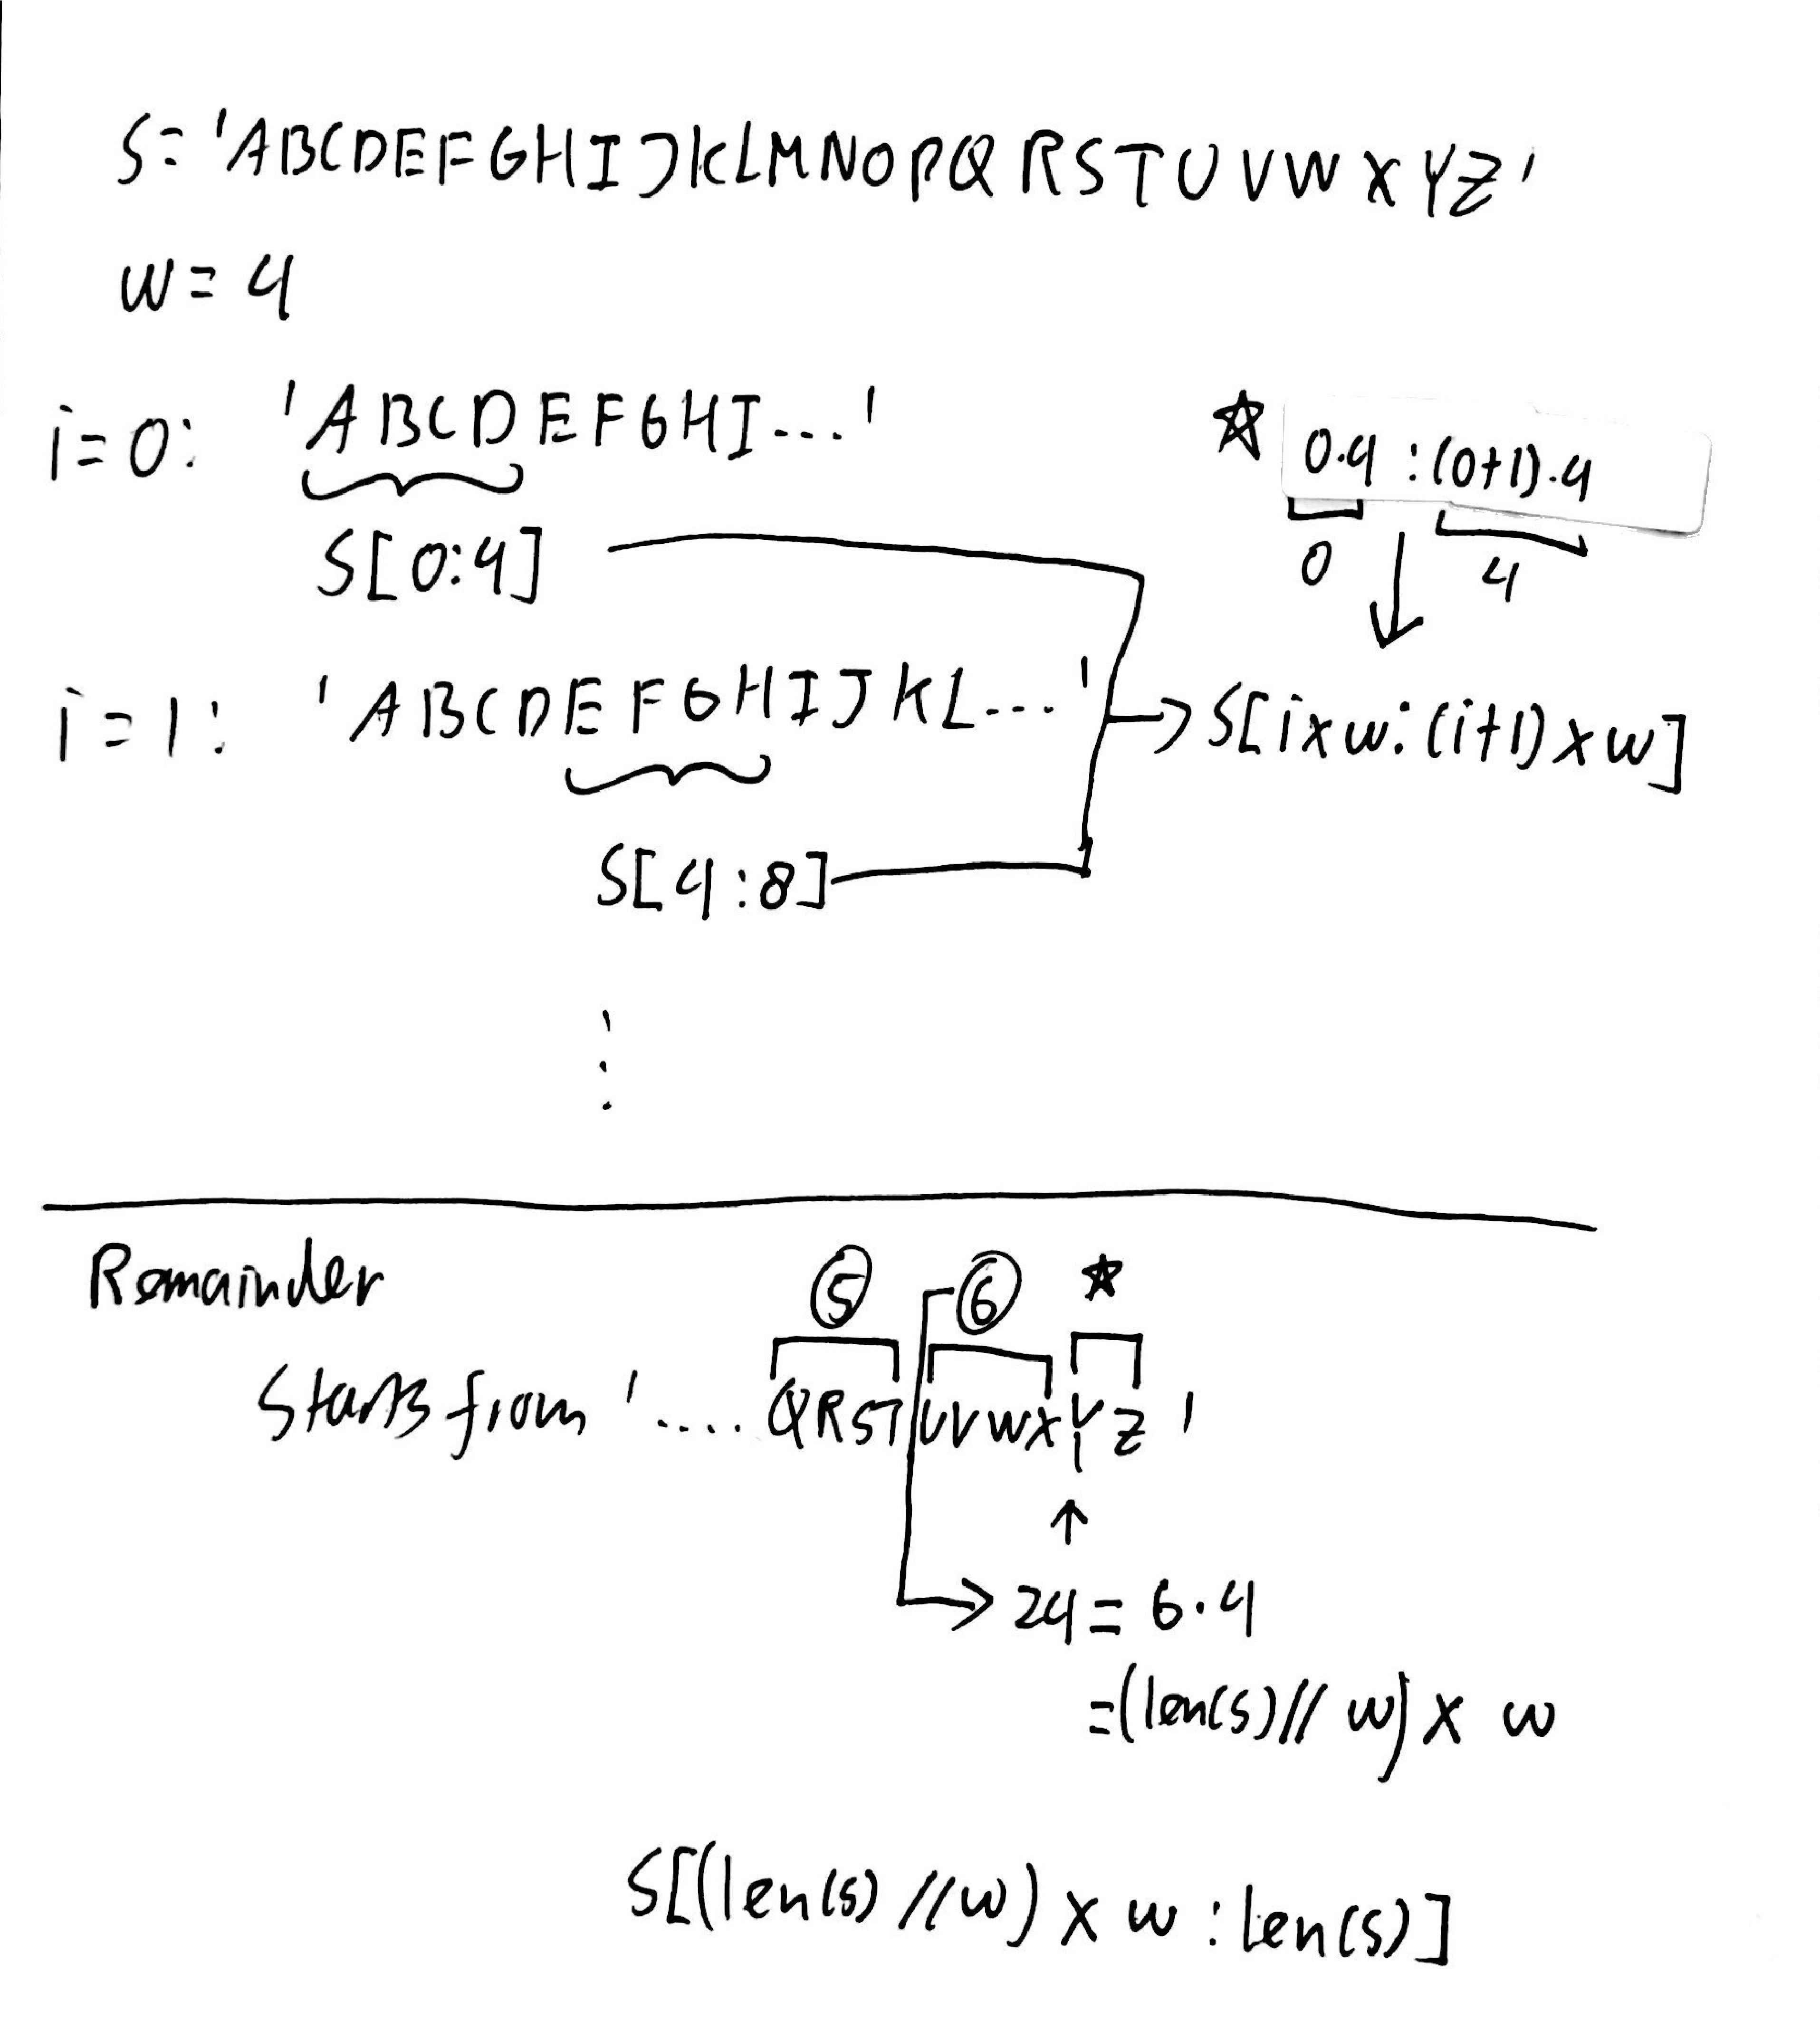 S= 'ABCDEFGHIJKLMNOPQRSTUVWXYZ'
w= 4
i=0: 'ABCDEFGHI...'
☆ 0.4 : (0+1).4
0 4
S[0:4]
i=1: 'ABCDEFGHIJKL...'
→ S[i×w:(i+1)×w]
S[4:8]
⋮
Remainder
⑤ ⑥ ☆
Starts from '....QRSTUVWXYZ'
↑
→ 24 = 6.4
=(len(s)//w)× w
S[(len(s)//w)×w:len(s)]